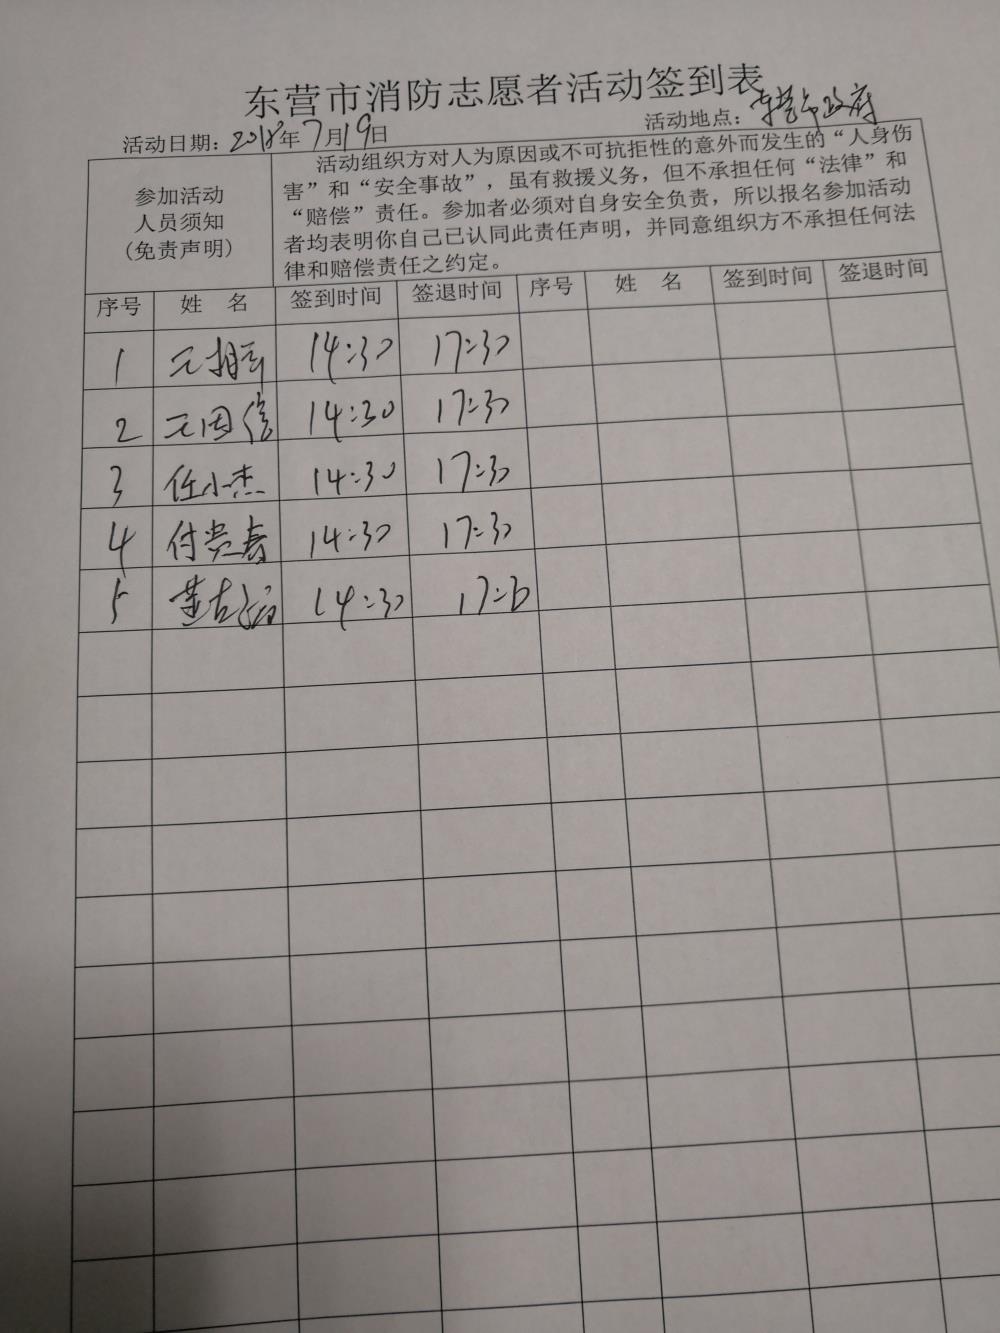 东营市消防志愿者活动签到表
活动日期：2018年7月19日 活动地点：东营市政府
参加活动
人员须知
（免责声明）
活动组织方对人为原因或不可抗拒性的意外而发生的“人身伤
害”和“安全事故”，虽有救援义务，但不承担任何“法律”和
“赔偿”责任。参加者必须对自身安全负责，所以报名参加活动
者均表明你自己已认同此责任声明，并同意组织方不承担任何法
律和赔偿责任之约定。
序号 姓 名 签到时间 签退时间 序号 姓 名 签到时间 签退时间
1 14:30 17:30
2 14:30 17:30
3 任小杰 14:30 17:30
4 付贵春 14:30 17:30
5 14:30